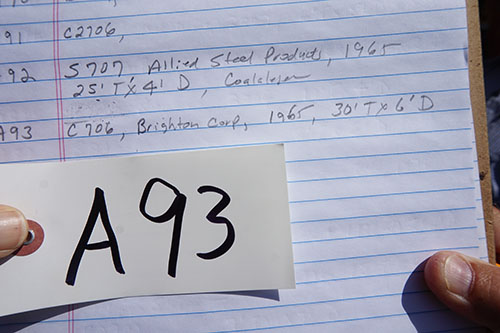 91 C2706,
92 S707 Allied Steel Products, 1965
25' T x 4' D, Coalescer
A93 C706, Brighton Corp, 1965, 30' T x 6' D
A93